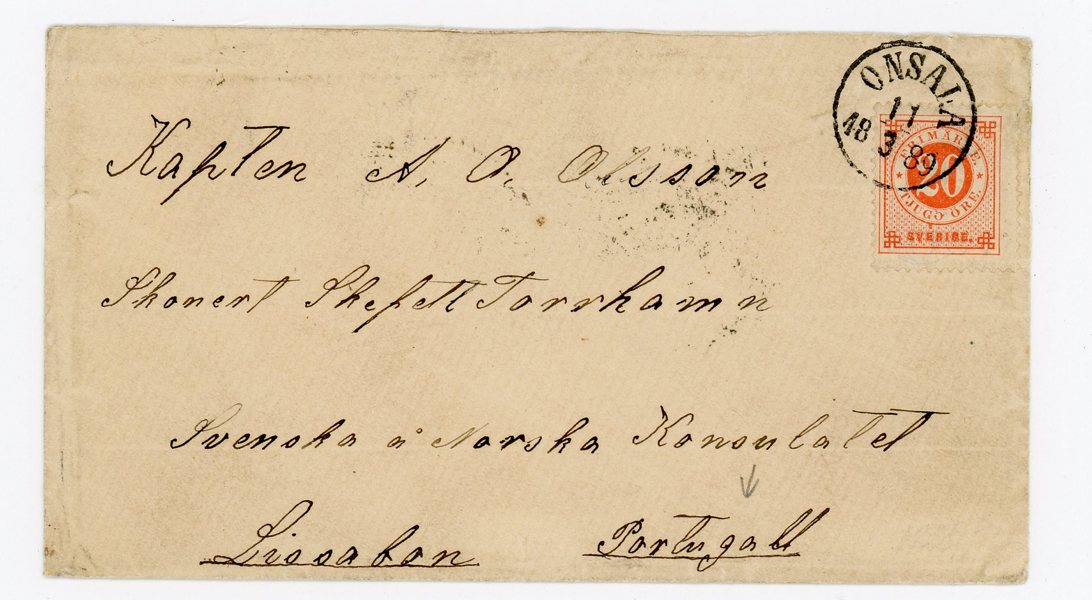 ONSALA
11
18 3 89
FRIMÄRKE
20
TJUGO ÖRE.
SVERIGE.
Kapten A. O. Olsson
Skonert Skeppett Torrhamn
Svenska å Norska Konsulatet
Lissabon Portugall